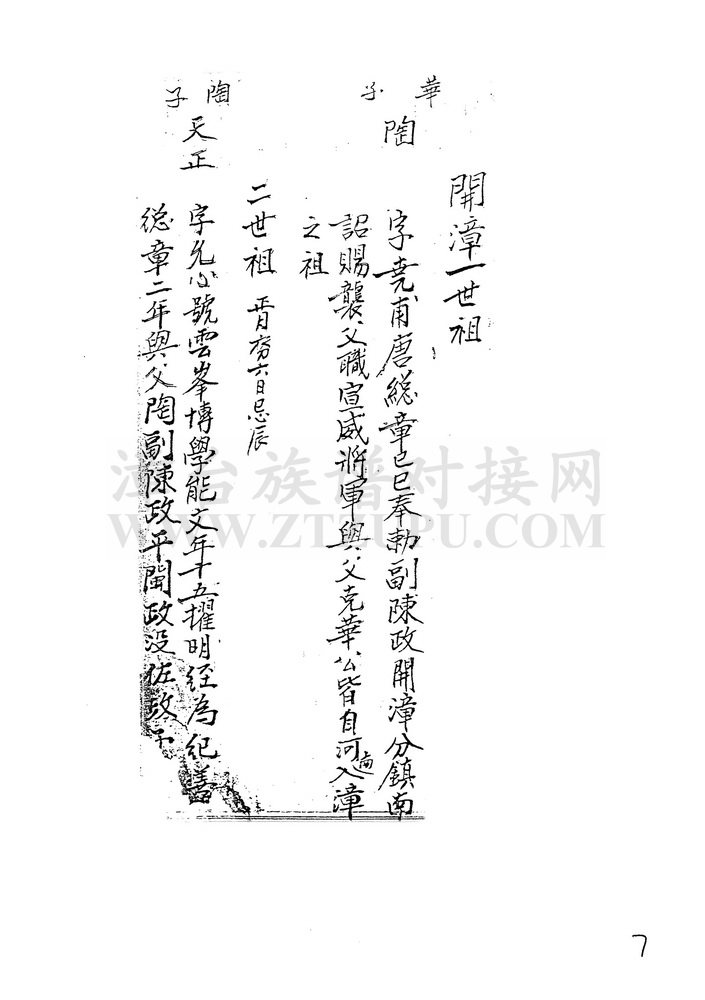 開漳一世祖
華子
陶
字堯甫唐緫章已巳奉勅副陳政開漳分鎮南
詔賜襲父職宣威將軍與父克華公皆自河南入漳
之祖
二世祖 六日忌辰
陶子
天正
字允心號雲峯博學能文年十五擢明經為紀善
緫章二年與父陶副陳政平閩政没佐政子
漳台族谱对接网
WWW.ZTZUPU.COM
7